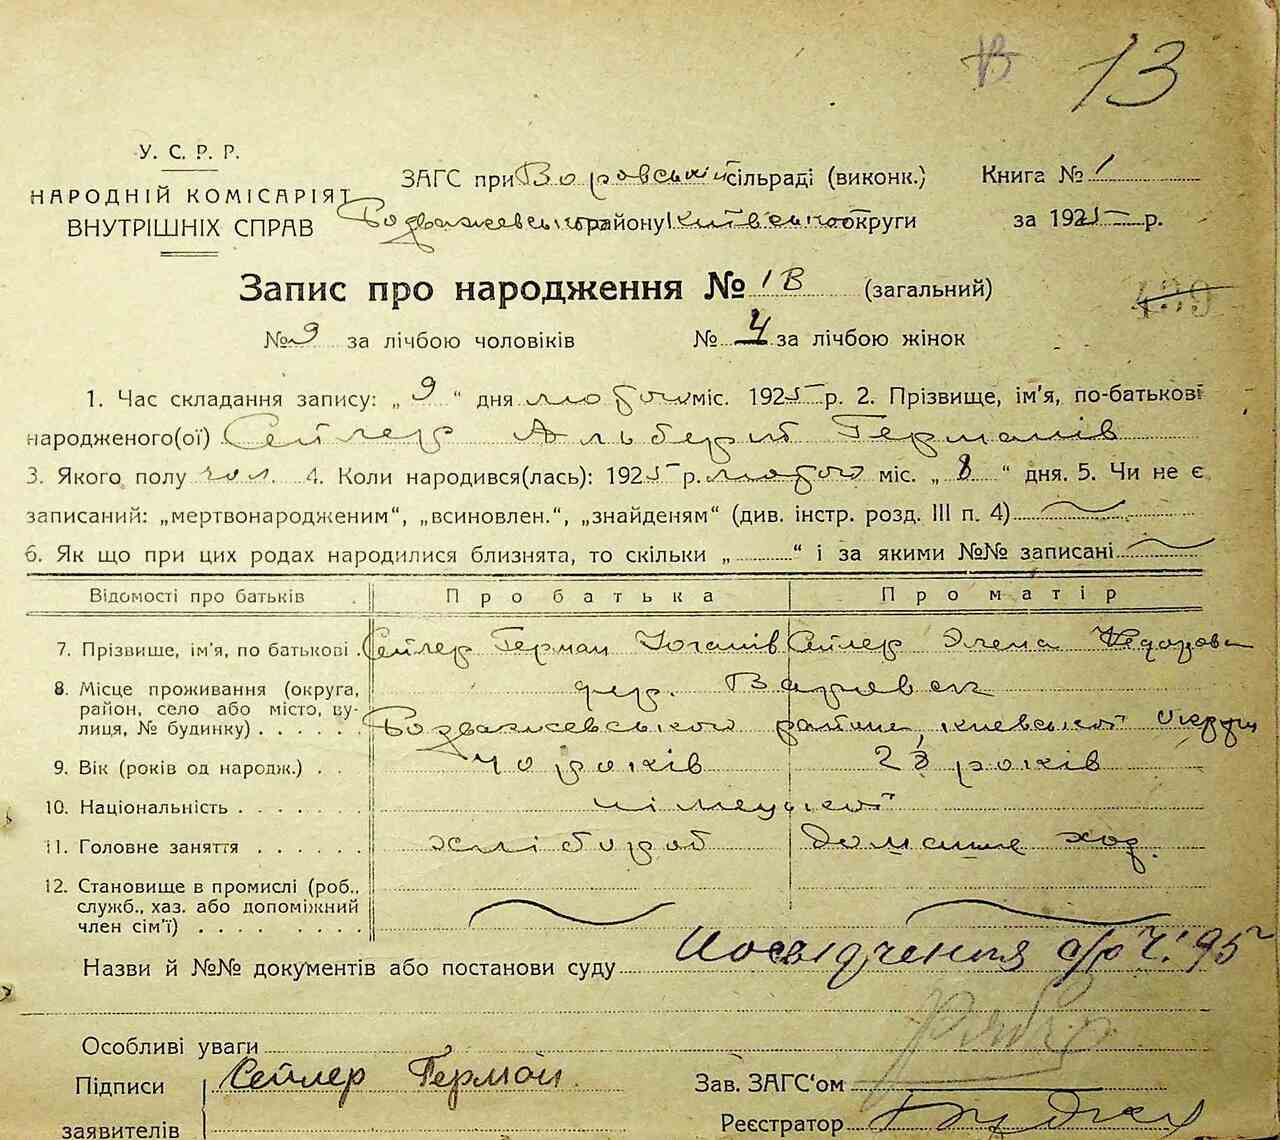 13
У. С. Р. Р.
НАРОДНІЙ КОМІСАРІЯТ
ВНУТРІШНІХ СПРАВ
ЗАГС при Воровській сільраді (виконк.)
району Київської округи
Книга № 1
за 1925 р.
Запис про народження № 1В (загальний)
№ 9 за лічбою чоловіків № 4 за лічбою жінок
1. Час складання запису: „ 9 “ дня лютого міс. 1925 р. 2. Прізвище, ім'я, по-батькові
народженого(ої) Сейлер Альберт Германів
3. Якого полу чол. 4. Коли народився(лась): 1925 р. лютого міс. „ 8 “ дня. 5. Чи не є
записаний: „мертвонародженим“, „всиновлен.“, „знайденям“ (див. інстр. розд. III п. 4)
6. Як що при цих родах народилися близнята, то скільки „ “ і за якими №№ записані
Відомості про батьків Про батька Про матір
7. Прізвище, ім'я, по батькові Сейлер Герман Юганів Сейлер Элена
8. Місце проживання (округа,
район, село або місто, ву-
лиця, № будинку) району, киевської округи
9. Вік (років од народж.) 40 років 28 років
10. Національність німецької
11. Головне заняття хлібороб домашне хоз.
12. Становище в промислі (роб.,
служб., хаз. або допоміжний
член сім'ї)
Назви й №№ документів або постанови суду Посвідчення с/р Ч. 95
Особливі уваги
Підписи Сейлер Герман Зав. ЗАГС'ом
заявителів Реєстратор